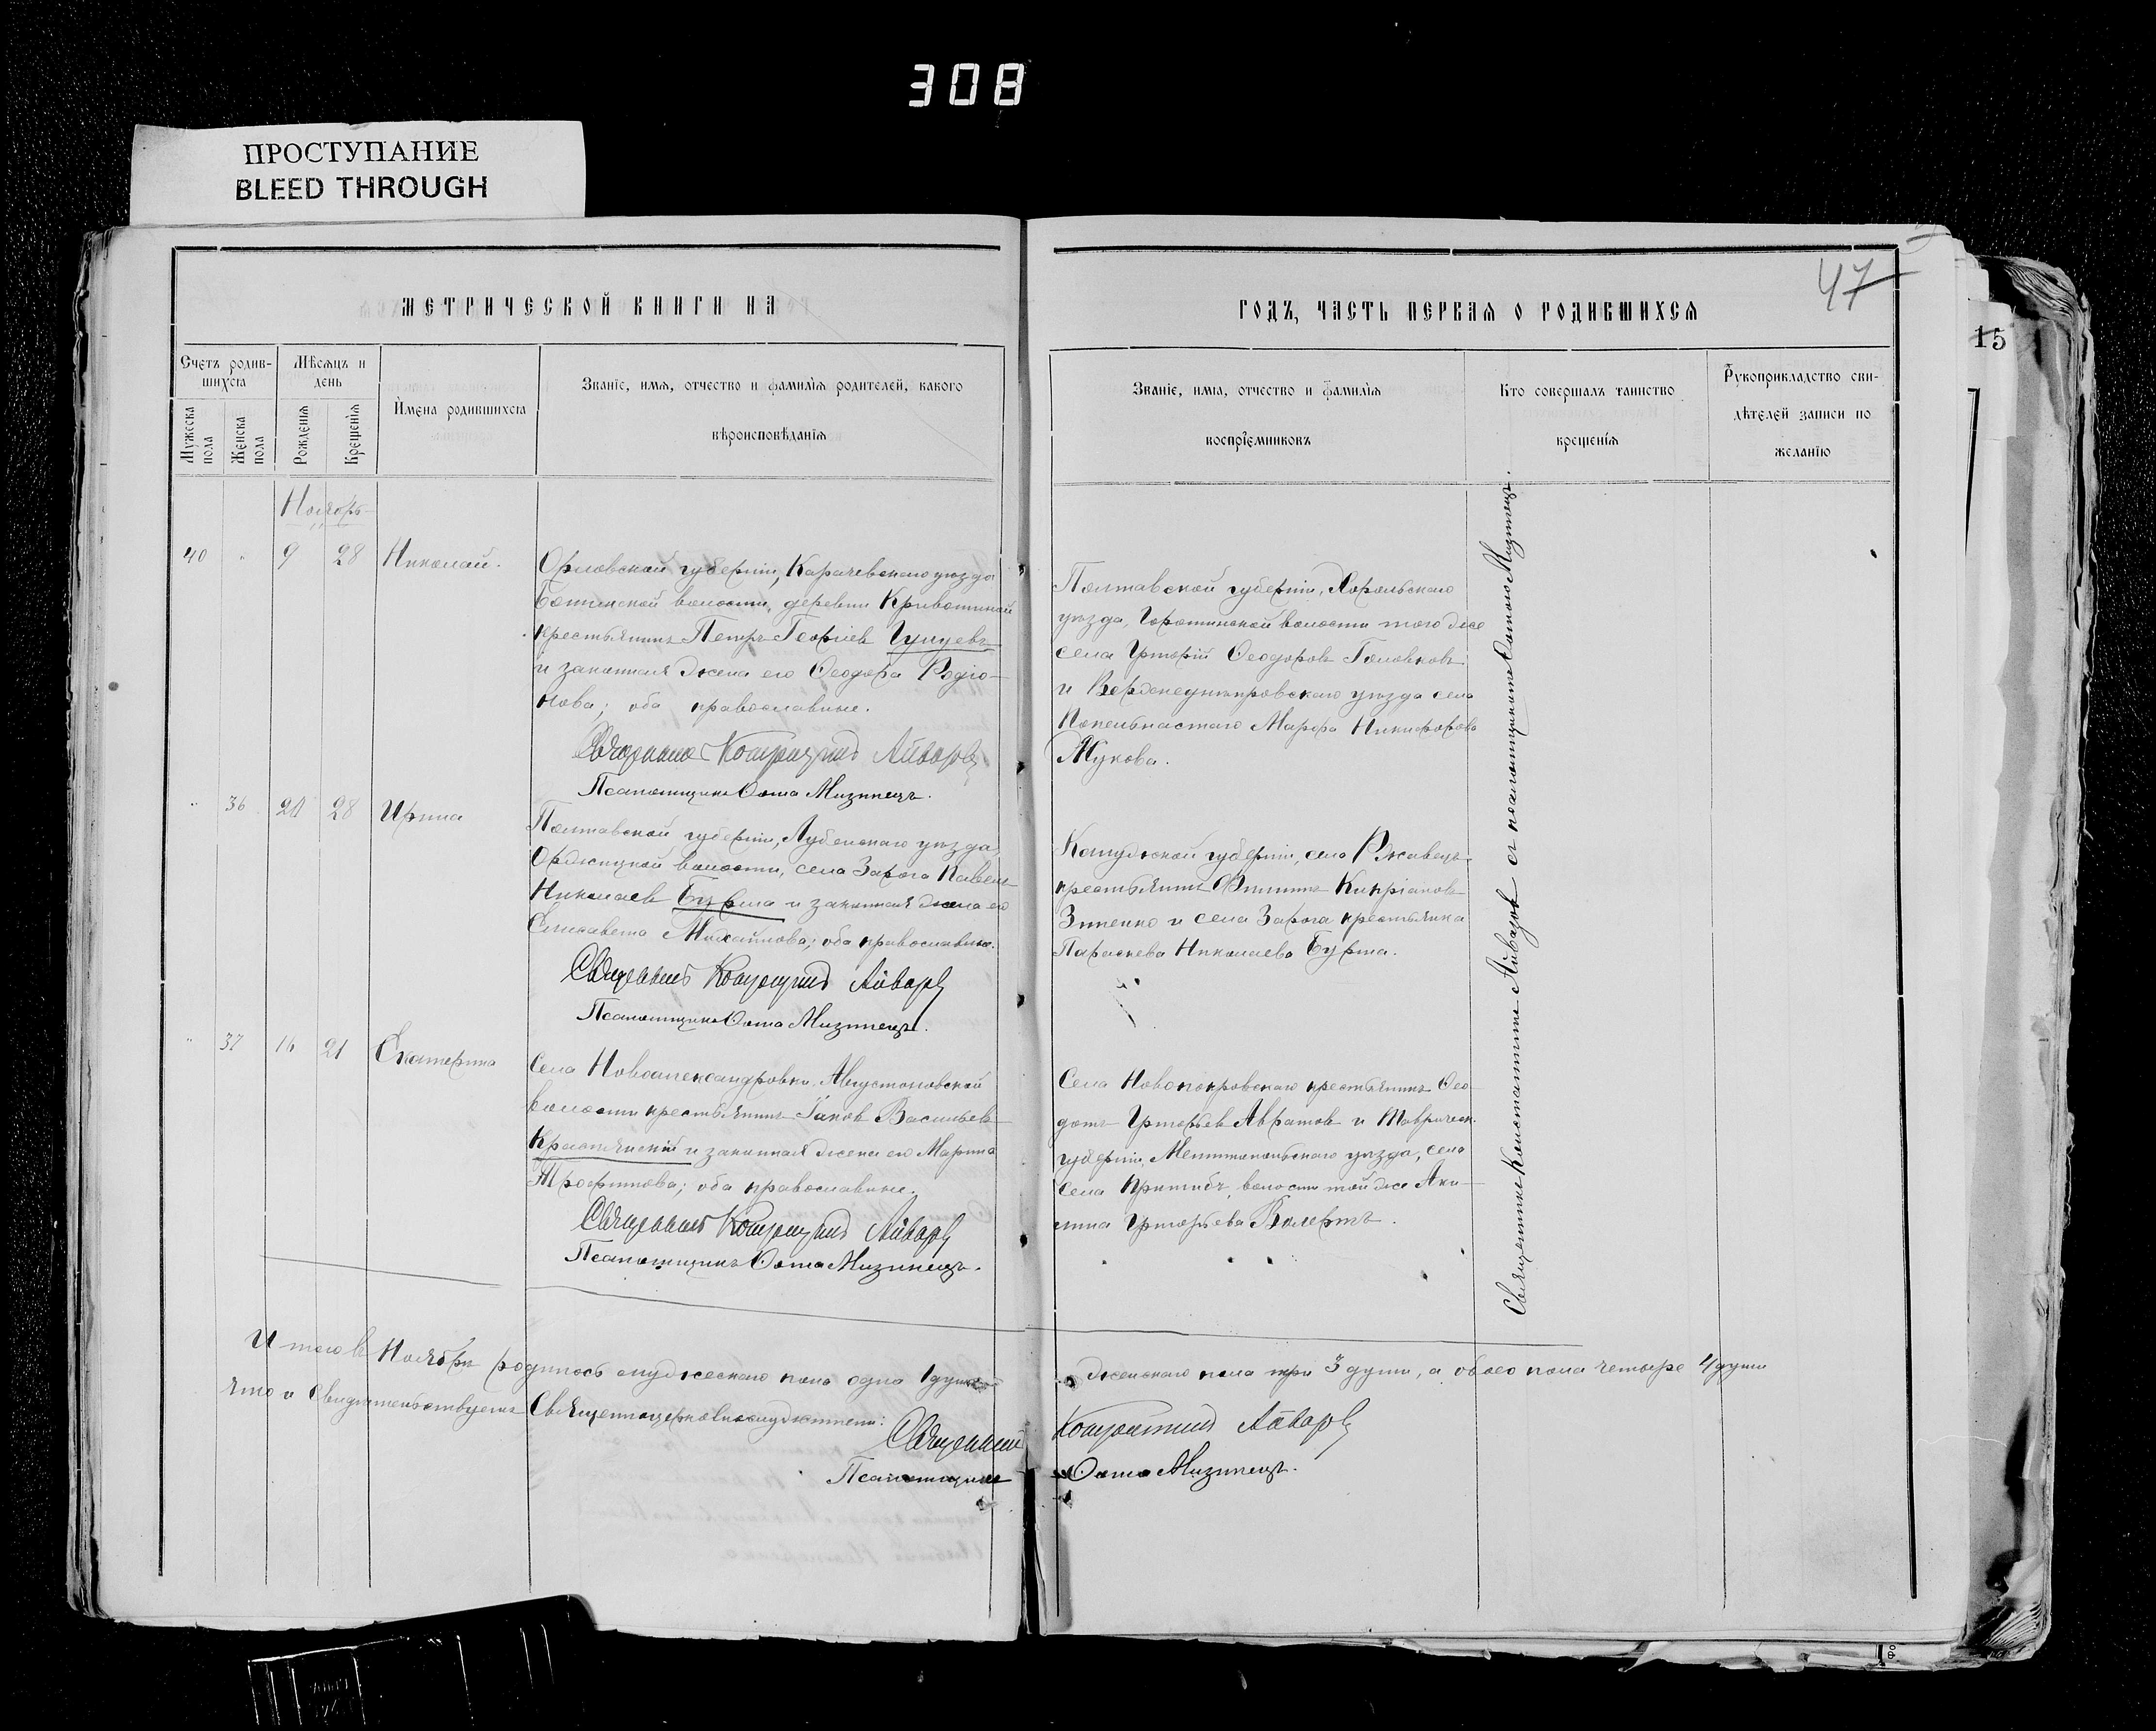 308
ПРОСТУПАНИЕ
BLEED THROUGH
47
15
МЕТРИЧЕСКОЙ КНИГИ НА
ГОДЪ, ЧАСТЬ ПЕРВАЯ О РОДИВШИХСЯ
Счетъ родив-
шихся
Мѣсяцъ и
день
Мужеска
пола
Женска
пола
Рожденія
Крещенія
Имена родившихся
Званіе, имя, отчество и фамилія родителей, какого
вѣроисповѣданія
Званіе, имя, отчество и фамилія
воспріемниковъ
Кто совершалъ таинство
крещенія
Рукоприкладство сви-
дѣтелей записи по
желанію
Ноябрь
40 " 9 28 Николай.
Орловской губерніи, Карачевскаго уѣзда
волости, деревни
крестьянинъ Петръ Георгіев
и законная жена его Ѳеодора Родіо-
нова; оба православные.
Священникъ Константинъ Айваровъ
Псаломщикъ Ѳома Мизинецъ.
Полтавской губерніи, Хорольскаго
уѣзда, волости того же
села Григорій Ѳеодоровъ Головковъ
и Верхнеднѣпровскаго уѣзда села
Попельнастаго Марфа Никифорова
Жукова.
" 36 28 Ирина
Полтавской губерніи, Лубенскаго уѣзда
Оржицкой волости, села Зарога Павелъ
Николаев Бурма и законная жена его
Елисавета Михайлова; оба православные.
Священникъ Константинъ Айваровъ
Псаломщикъ Ѳома Мизинецъ.
губерніи, села Ржавецъ
крестьянинъ Филиппъ Кипріановъ
Зинченко и села Зарога крестьянка
Параскева Николаева Бурма.
" 37 16 21 Екатерина
Села Новоалександровки, Августоновской
волости крестьянинъ Іаков Васильевъ
Краснянскій и законная жена его Марина
Трофимова; оба православные.
Священникъ Константинъ Айваровъ
Псаломщикъ Ѳома Мизинецъ.
Села Новопокровскаго крестьянинъ Ѳео-
дотъ Григорьев Авратов и Тавричес.
губерніи, Мелитопольскаго уѣзда, села
села Пришибъ, волости той же Аки-
лина Григорьева
Священникъ Константинъ Айваровъ съ псаломщикомъ Ѳомою Мизинецъ.
Итого въ Ноябрѣ родилось мужескаго пола одна 1 душа
женскаго пола три 3 души, а обоего пола четыре 4 души
что и свидѣтельствуемъ Священноцерковнослужители:
Священникъ Константинъ Айваровъ
Псаломщикъ Ѳома Мизинецъ.